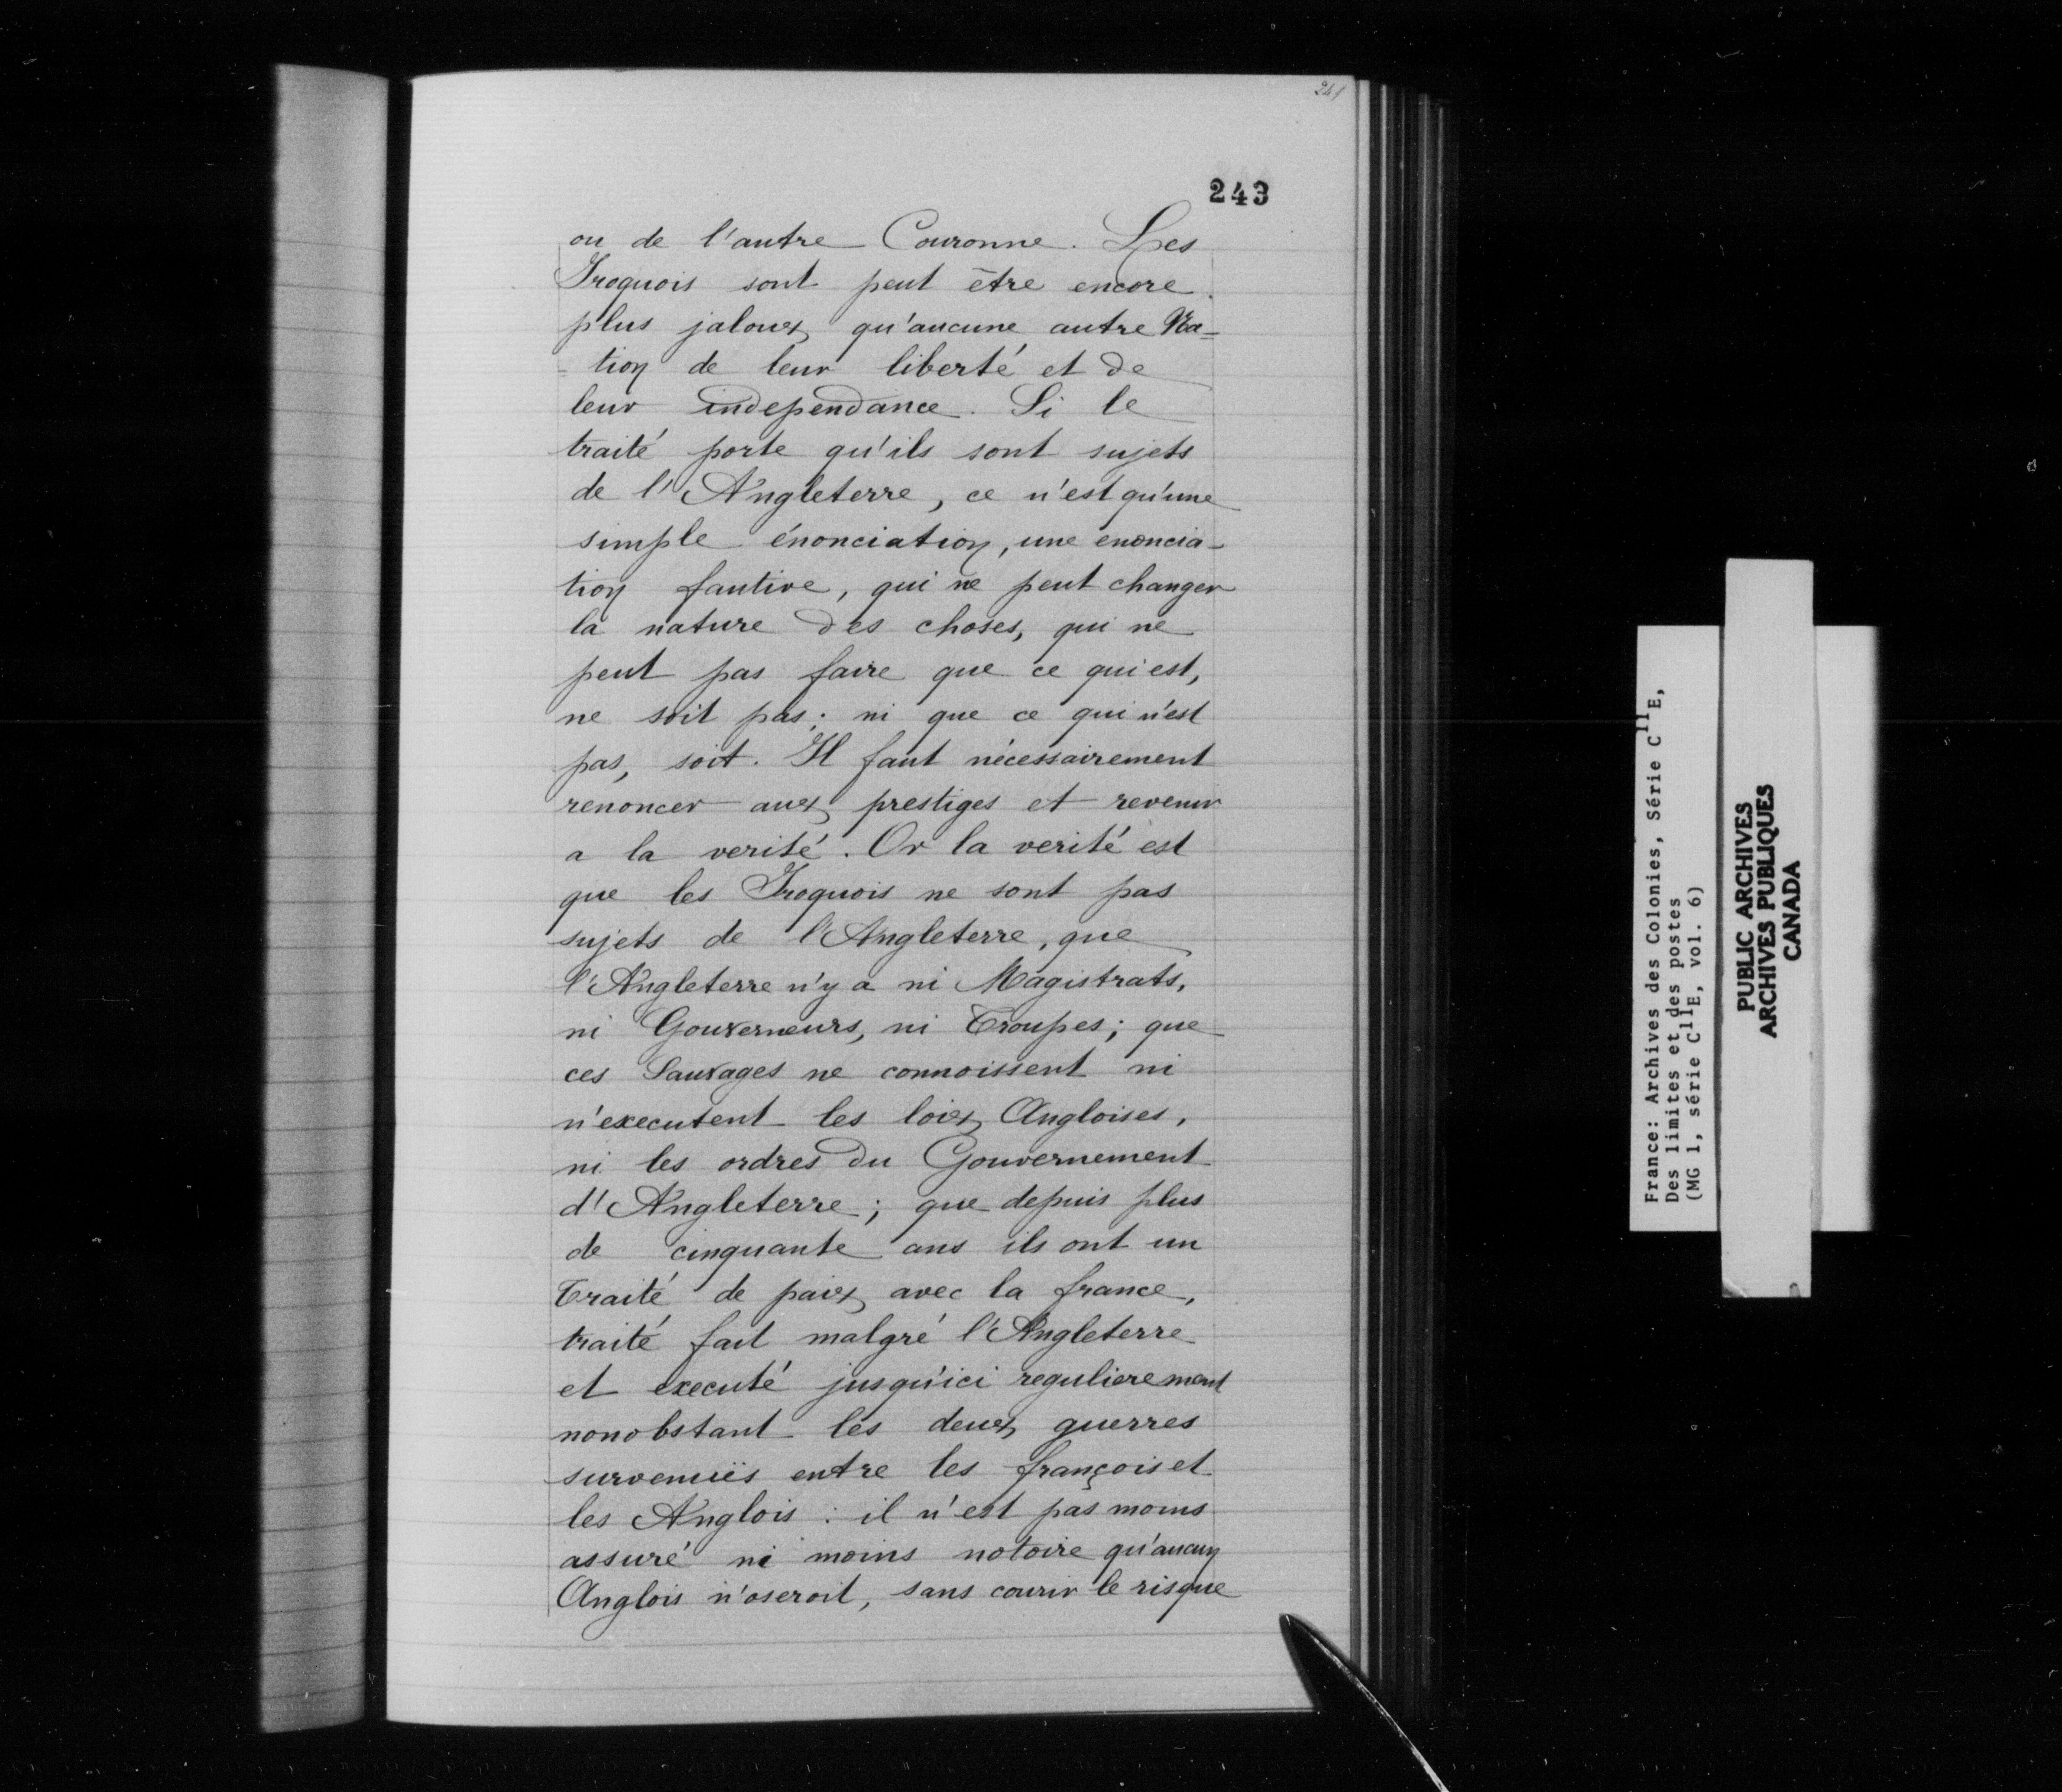 241
243
ou de l'autre Couronne. Les
Iroquois sont peut être encore
plus jaloux qu'aucune autre Na-
-tion de leur liberté et de
leur independance. Si le
traité porte qu'ils sont sujets
de l'Angleterre, ce n'est qu'une
simple énonciation, une enoncia-
tion fautive, qui ne peut changer
la nature des choses, qui ne
peut pas faire que ce qui est,
ne soit pas; ni que ce qui n'est
pas, soit. Il faut nécessairement
renoncer aux prestiges et revenir
a la verité. Or la verité est
que les Iroquois ne sont pas
sujets de l'Angleterre, que
l'Angleterre n'y a ni Magistrats,
ni Gouverneurs, ni Troupes; que
ces Sauvages ne connoissent ni
n'executent les loix Angloises,
ni les ordres du Gouvernement
d'Angleterre; que depuis plus
de cinquante ans ils ont un
Traité de paix avec la france,
traité fait malgré l'Angleterre
et executé jusqu'ici regulierement
nonobstant les deux guerres
survenuës entre les françois et
les Anglois : il n'est pas moins
assuré ni moins notoire qu'aucun
Anglois n'oseroit, sans courir le risque
France: Archives des Colonies, série C11E,
Des limites et des postes
(MG 1, série C11E, vol. 6)
PUBLIC ARCHIVES
ARCHIVES PUBLIQUES
CANADA